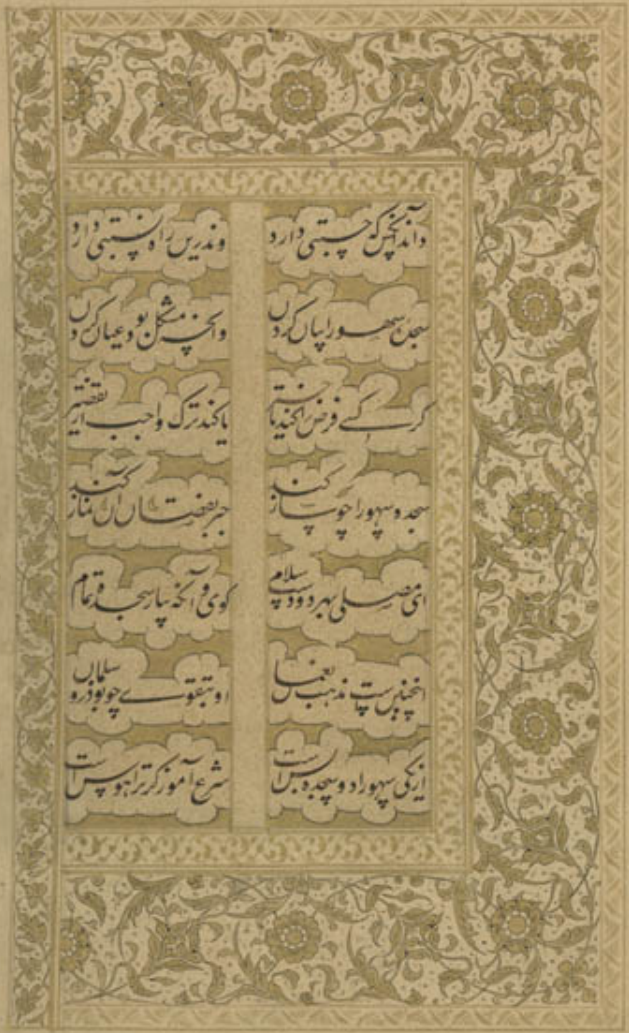 داند آنکس که جستنی دارد وندرین راه نشستنی دارد
سجدهٔ سهو را بیان کردن وانچه مشکل بود عیان کردن
گر کسی فرض را کند تاخیر یا کند ترک واجب از تقصیر
سجده سهو را چو ساز کند جبر نقصان آن نماز کند
ای مصلی بهر دو دست سلام گوی و آنکه بیار سجده تمام
اینچنین است مذهب نعمان او بتقوی چو بوذر و سلمان
از یکی سهو را دو سجده بس است شرع آموز گر ترا هوس است